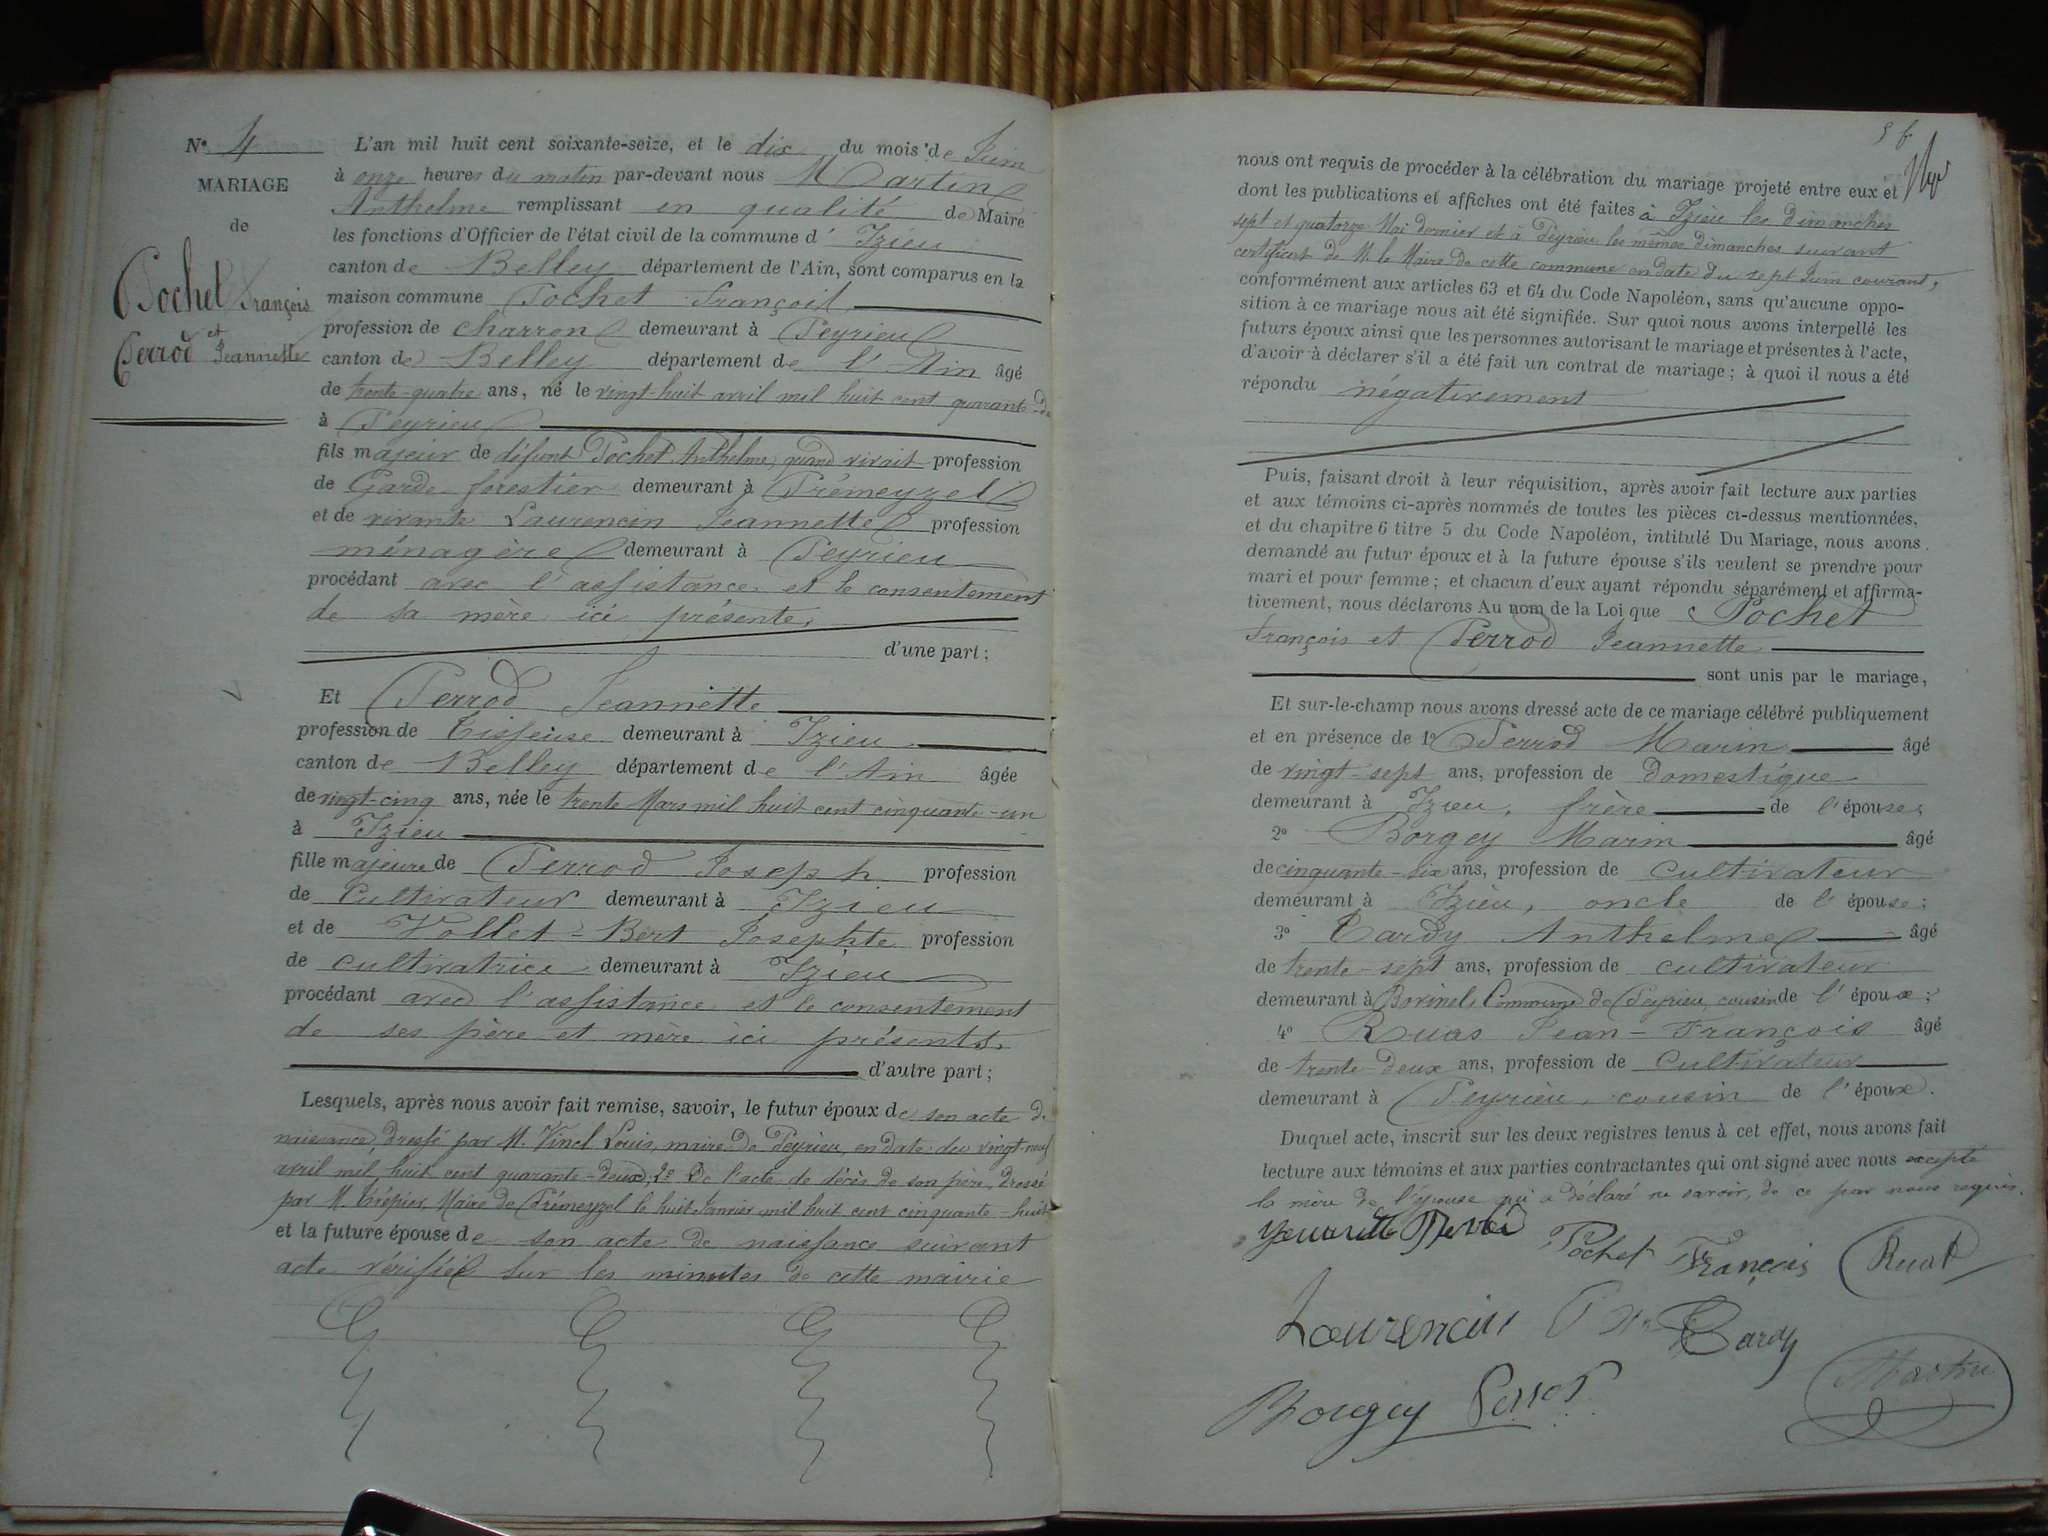 N° 4
MARIAGE
de
Pochet François
et
Perrod Jeannette
L'an mil huit cent soixante-seize, et le dix du mois de Juin
à onze heures du matin par-devant nous Martin
Anthelme remplissant en qualité de Maire
les fonctions d'Officier de l'état civil de la commune d' Izieu
canton de Belley département de l'Ain, sont comparus en la
maison commune Pochet François
profession de charron demeurant à Peyrieu
canton de Belley département de l'Ain âgé
de trente-quatre ans, né le vingt-huit avril mil huit cent quarante-deux
à Peyrieu
fils majeur de défunt Pochet Anthelme, quand vivait profession
de Garde forestier demeurant à Prémeyzel
et de vivante Laurencin Jeannette profession
ménagère demeurant à Peyrieu
procédant avec l'assistance et le consentement
de sa mère ici présente,
d'une part;
Et Perrod Jeannette
profession de Tisseuse demeurant à Izieu
canton de Belley département de l'Ain âgée
de vingt-cinq ans, née le trente Mars mil huit cent cinquante-un
à Izieu
fille majeure de Perrod Joseph profession
de Cultivateur demeurant à Izieu
et de Vollet-Bert Josephte profession
de cultivatrice demeurant à Izieu
procédant avec l'assistance et le consentement
de ses père et mère ici présents.
d'autre part;
Lesquels, après nous avoir fait remise, savoir, le futur époux de son acte de
naissance, dressé par M. Vincl Louis, maire de Peyrieu, en date du vingt-neuf
avril mil huit cent quarante-deux, 2° De l'acte de décès de son père, dressé
par M. Trépier, Maire de Prémeyzel le huit Janvier mil huit cent cinquante-huit
et la future épouse de son acte de naissance suivant
acte vérifié sur les minutes de cette mairie
nous ont requis de procéder à la célébration du mariage projeté entre eux et
dont les publications et affiches ont été faites à Izieu les dimanches
sept et quatorze Mai dernier et à Peyrieu les mêmes dimanches suivant
certificat de M. le Maire de cette commune en date du sept Juin courant,
conformément aux articles 63 et 64 du Code Napoléon, sans qu'aucune oppo-
sition à ce mariage nous ait été signifiée. Sur quoi nous avons interpellé les
futurs époux ainsi que les personnes autorisant le mariage et présentes à l'acte,
d'avoir à déclarer s'il a été fait un contrat de mariage; à quoi il nous a été
répondu négativement
Puis, faisant droit à leur réquisition, après avoir fait lecture aux parties
et aux témoins ci-après nommés de toutes les pièces ci-dessus mentionnées,
et du chapitre 6 titre 5 du Code Napoléon, intitulé Du Mariage, nous avons
demandé au futur époux et à la future épouse s'ils veulent se prendre pour
mari et pour femme; et chacun d'eux ayant répondu séparément et affirma-
tivement, nous déclarons Au nom de la Loi que Pochet
François et Perrod Jeannette
sont unis par le mariage,
Et sur-le-champ nous avons dressé acte de ce mariage célébré publiquement
et en présence de 1° Perrod Marin âgé
de vingt-sept ans, profession de domestique
demeurant à Izieu, frère de l'épouse;
2° Borgey Marin âgé
de cinquante-six ans, profession de cultivateur
demeurant à Izieu, oncle de l'épouse;
3° Tardy Anthelme âgé
de trente-sept ans, profession de cultivateur
demeurant à Bovinel, Commune de Peyrieu, cousin de l'époux;
4° Ruas Jean-François âgé
de trente-deux ans, profession de Cultivateur
demeurant à Peyrieu, cousin de l'époux.
Duquel acte, inscrit sur les deux registres tenus à cet effet, nous avons fait
lecture aux témoins et aux parties contractantes qui ont signé avec nous excepté
la mère de l'épouse qui a déclaré ne savoir, de ce par nous requis.
Pochet François Ruat
Laurencin Tardy
Martin
Borgey Perrod